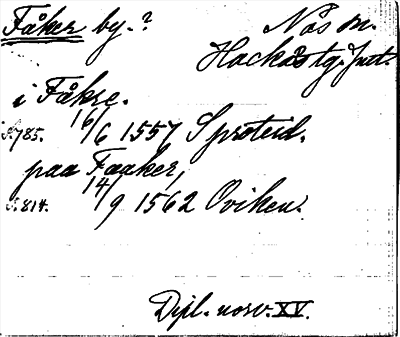 Fåker by.?
Näs sn.
Hackås tg. Jmt.
i Fåkre.
S.785. 16/6 1557 Sproteid.
paa Faaker,
S.814. 14/9 1562 Oviken.
Dipl. norv. XV.